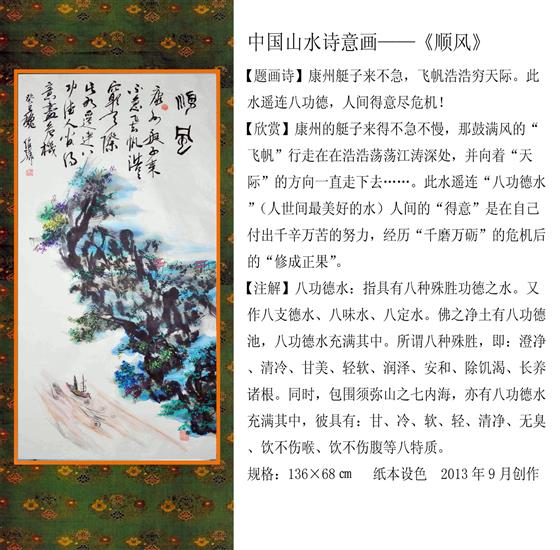 中国山水诗意画——《顺风》
【题画诗】康州艇子来不急，飞帆浩浩穷天际。此
水遥连八功德，人间得意尽危机！
【欣赏】康州的艇子来得不急不慢，那鼓满风的“
飞帆”行走在在浩浩荡荡江涛深处，并向着“天
际”的方向一直走下去……。此水遥连“八功德水
”（人世间最美好的水）人间的“得意”是在自己
付出千辛万苦的努力，经历“千磨万砺”的危机后
的“修成正果”。
【注解】八功德水：指具有八种殊胜功德之水。又
作八支德水、八味水、八定水。佛之净土有八功德
池，八功德水充满其中。所谓八种殊胜，即：澄净
、清冷、甘美、轻软、润泽、安和、除饥渴、长养
诸根。同时，包围须弥山之七内海，亦有八功德水
充满其中，彼具有：甘、冷、软、轻、清净、无臭
、饮不伤喉、饮不伤腹等八特质。
规格：136×68㎝ 纸本设色 2013年9月创作